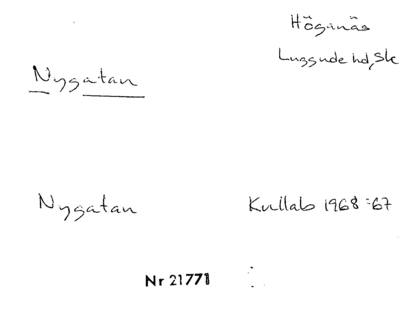 Höganäs
Luggude hd, Sk
Nygatan
Nygatan Kullab 1968:67
Nr 21771